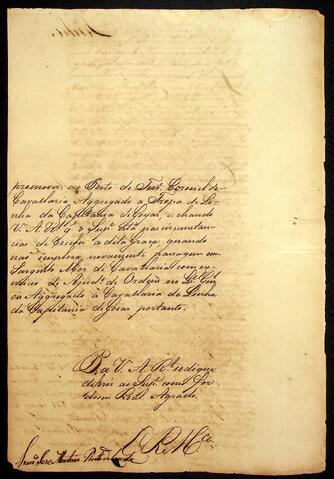 promover ao Posto de Ten.e Coronel de
Cavallaria Aggregado á Tropa de Li-
nha da Capitania de Goyaz, e achando
V. A. R. q̃ o Sup.e está nas circunstan-
cias de a dita Graça, quando
não implora novamente passagem em
Sargento Mor de Cavallaria com ex-
ercicio de Ajud.e de Ordens no
Aggregado á Cavallaria de Linha
da Capitania de Goiaz portanto.
P. a V. A. R. se digne
deferir ao Sup.e como for
do seu Real Agrado.
E. R. M.ce
José